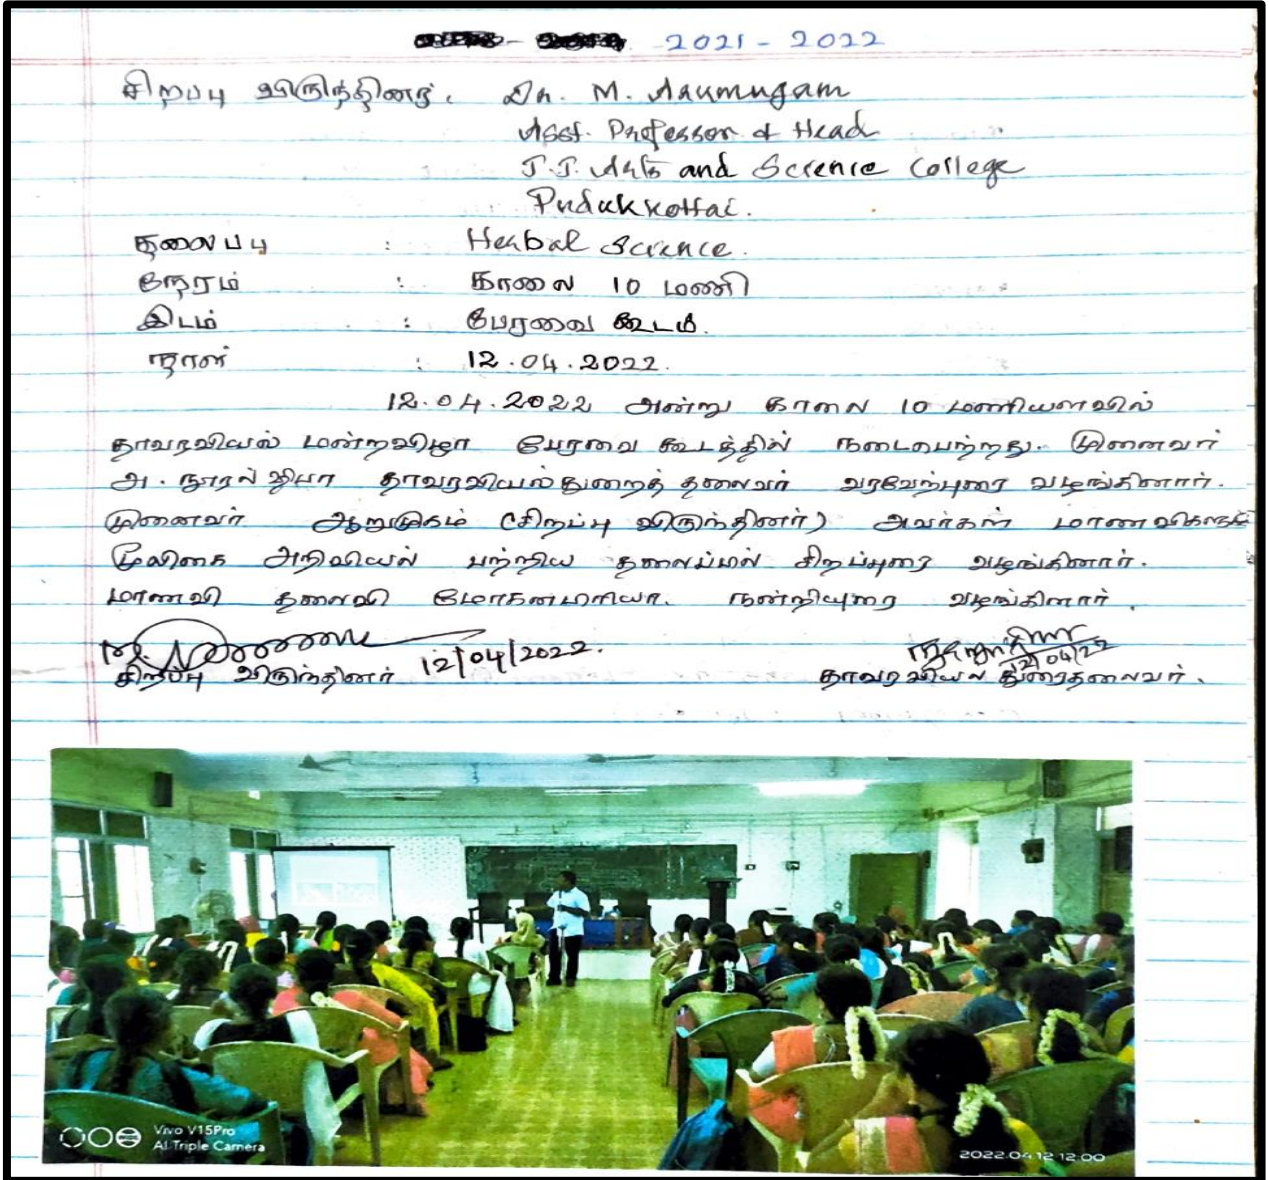 2021 - 2022
சிறப்பு விருந்தினர் . Dr. M. Arumugam
Asst. Professor & Head
J.J. Arts and Science College
Pudukkottai.
தலைப்பு : Herbal Science.
நேரம் : காலை 10 மணி
இடம் : பேரவை கூடம்.
நாள் : 12.04.2022.
12.04.2022 அன்று காலை 10 மணியளவில்
தாவரவியல் மன்றவிழா பேரவை கூடத்தில் நடைபெற்றது. முனைவர்
அ. நூரல் ஜியா தாவரவியல் துறைத் தலைவர் வரவேற்புரை வழங்கினார்.
முனைவர் ஆறுமுகம் (சிறப்பு விருந்தினர்) அவர்கள்
மூலிகை அறிவியல் பற்றிய தலைப்பில் சிறப்புரை வழங்கினார்.
மாணவி தலைவி மோகனபிரியா. நன்றியுரை வழங்கினார்.
12/04/2022. 12/04/22
சிறப்பு விருந்தினர் தாவரவியல் துரைதலைவர்.
Vivo V15Pro
AI Triple Camera
2022.04.12 12:00